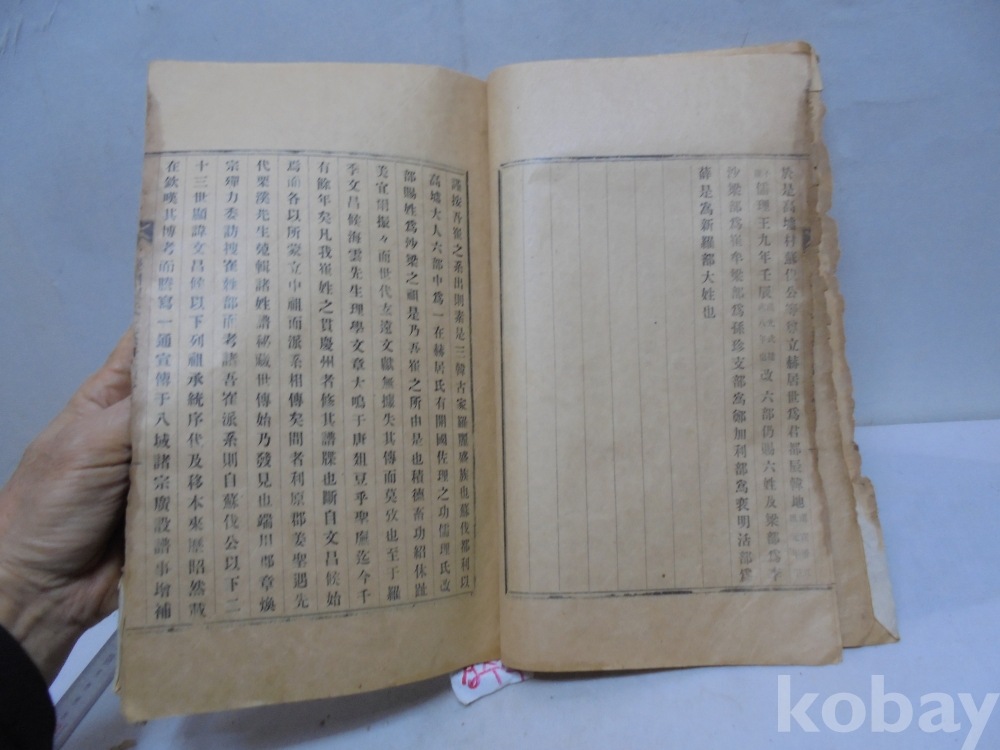 於是高墟村蘇伐公等尊立赫居世爲君都辰韓地
儒理王九年壬辰
改六部仍賜六姓及梁部爲李
沙梁部爲崔牟梁部爲孫珍支部爲鄭加利部爲裵明活部爲
薛是爲新羅都大姓也
謹按吾崔之系出則素是三韓古家羅麗盛族也蘇伐都利以
高墟大人六部中爲一在赫居氏有開國佐理之功儒理氏改
部賜姓爲沙梁之祖是乃吾崔之所由是也積德畜功紹休趾
美宜爾振々而世代立遠文獻無據失其傳而莫攷也至于羅
季文昌候海雲先生理學文章大鳴于唐俎豆乎聖廡迄今千
有餘年矣凡我崔姓之貫慶州者修其譜牒也斷自文昌候始
焉而各以所蒙立中祖而派系相傳矣間者利原郡姜聖遇先
代栗漢先生蒐輯諸姓譜秘藏世傳始乃發見也端川郡章煥
宗殫力委訪搜崔姓部而考諸吾崔派系則自蘇伐公以下二
十三世顯諱文昌候以下列祖承統序代及移本來歷昭然載
在欽嘆其博考而謄寫一通宣傳于八域諸宗廣設譜事增補
kobay